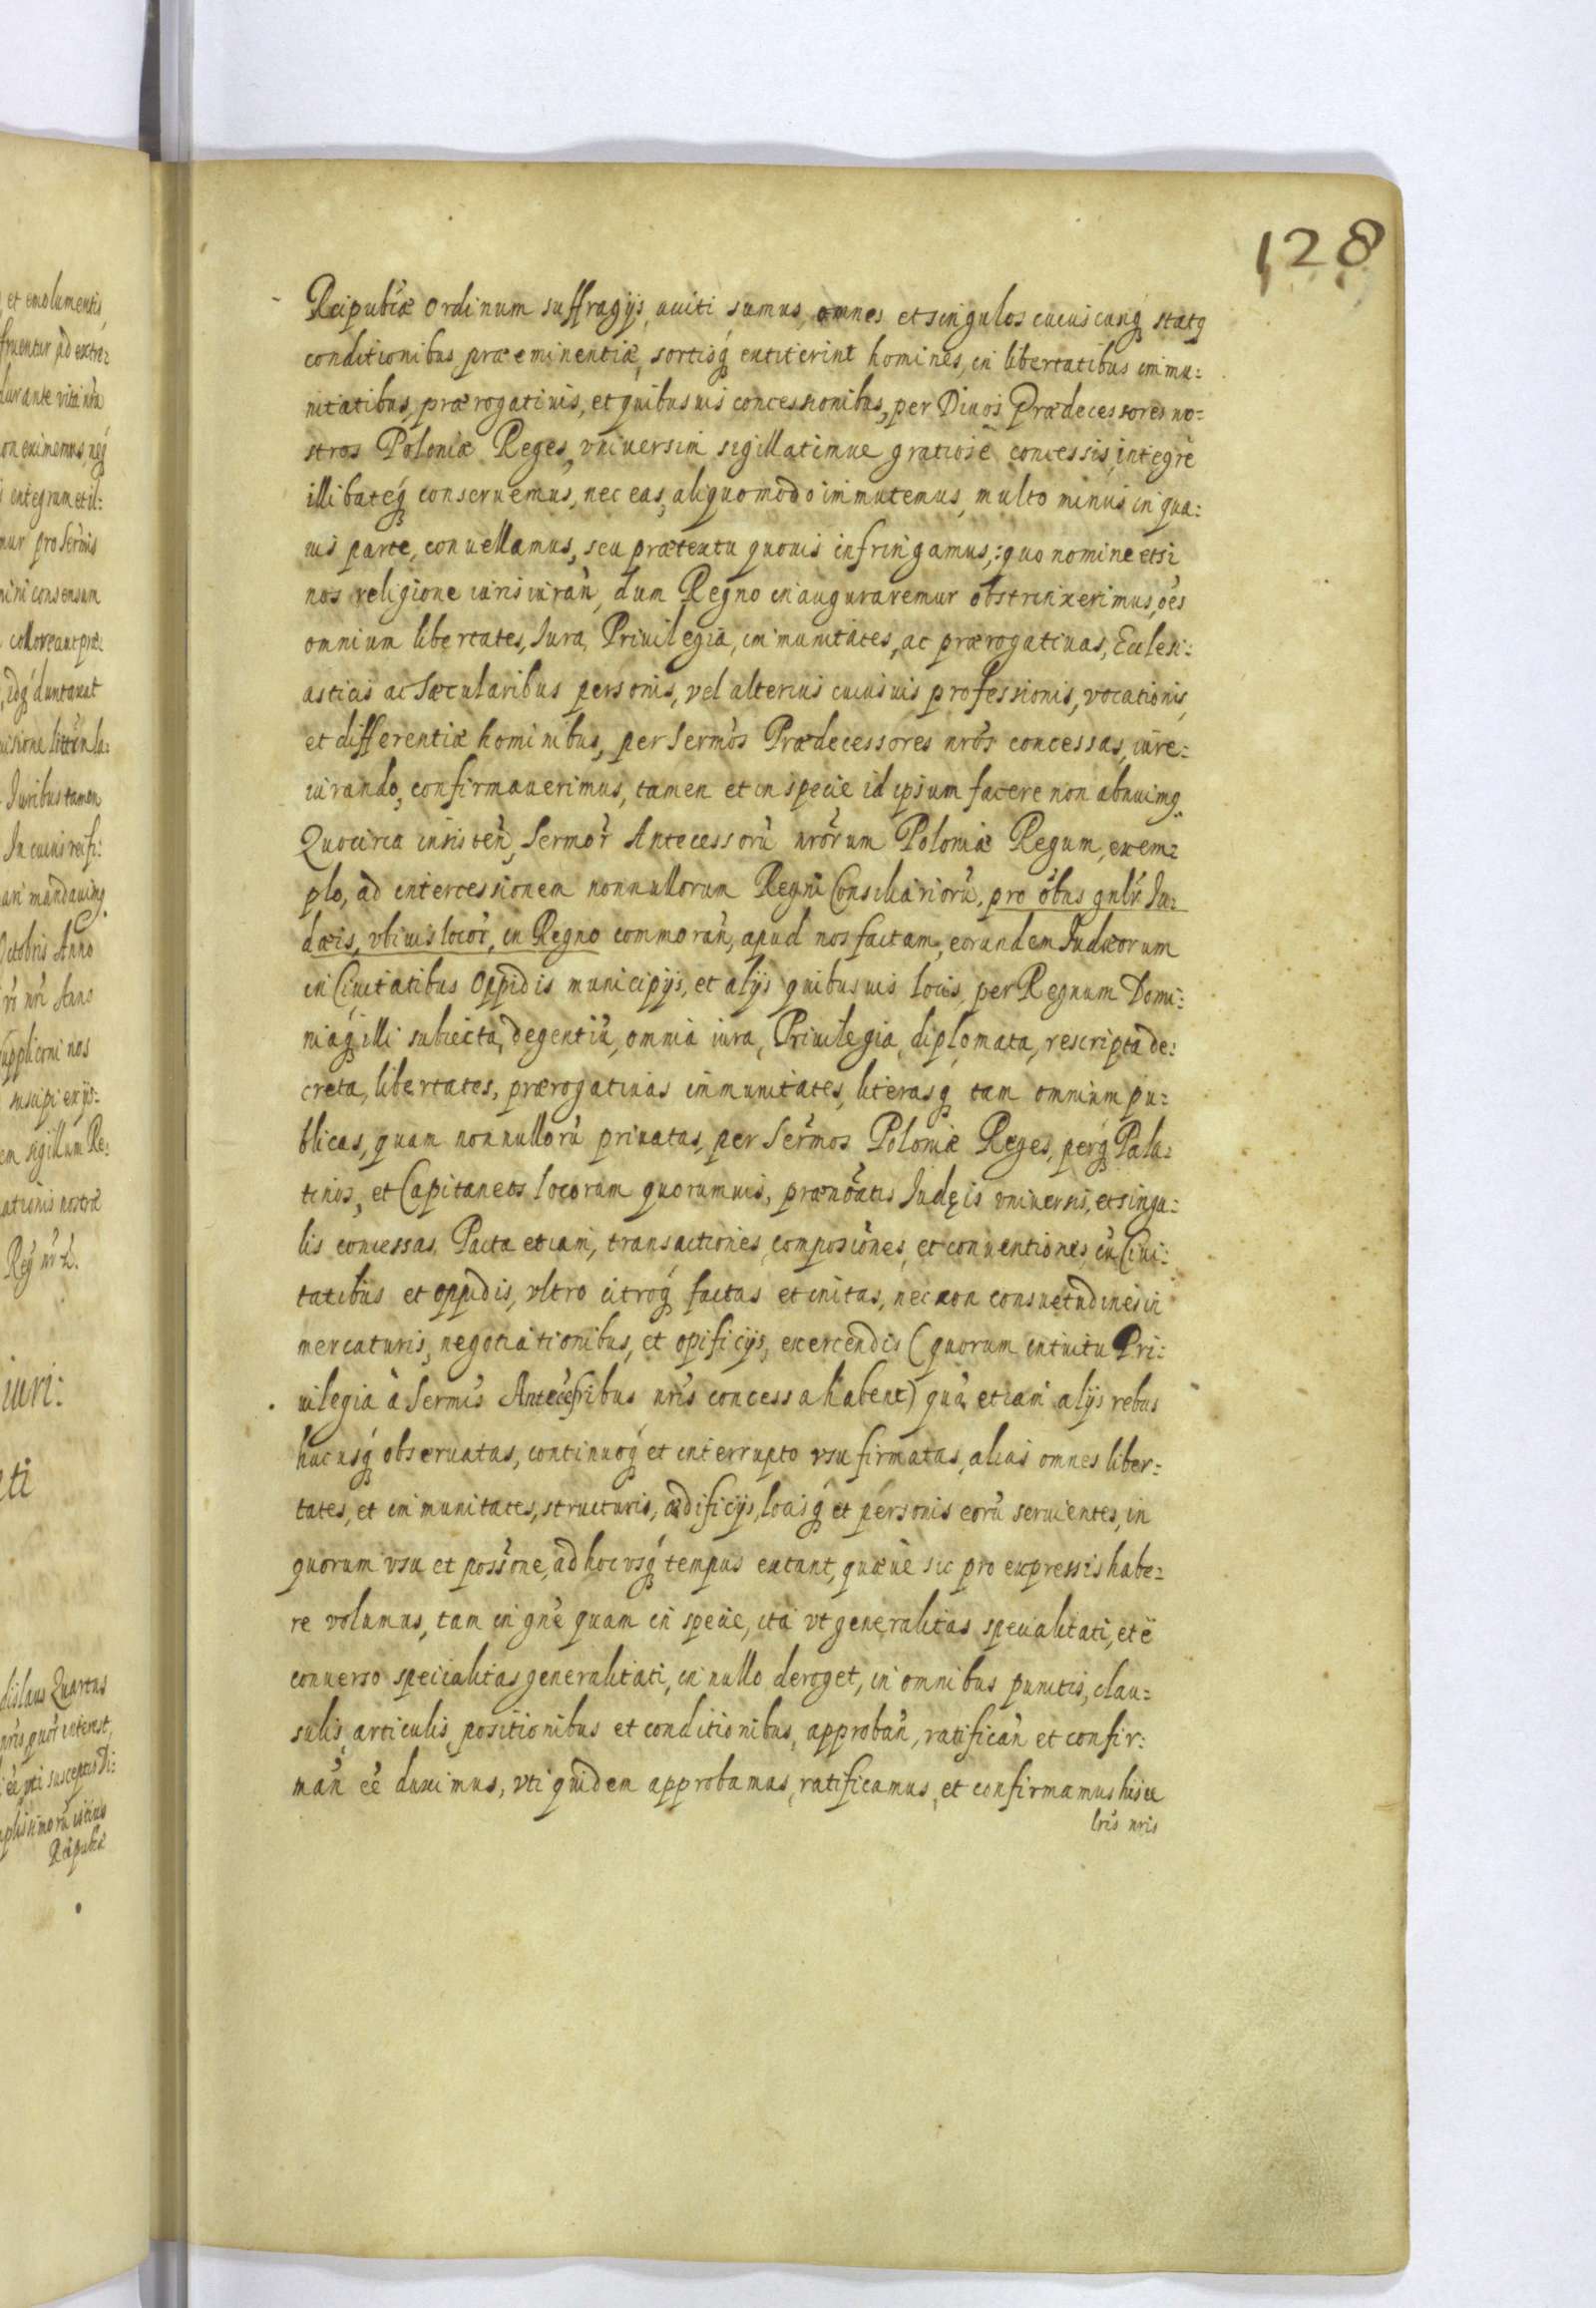 128
Reipublicæ Ordinum suffragijs, uniti sumus, omnes et singulos cuiuscunq́ statq
conditionibus præeminentiæ, sortisq́ extiterint homines, in libertatibus immu:
nitatibus, prærogatiuis, et quibusuis concessionibus, per Diuos Prædecessores no=
stros Poloniæ Reges, vniuersim sigillatimue gratiose concessis, integrè
illibateq́ conseruemus, nec eas, aliquomodo immutemus, multo minus in qua:
uis parte, conuellamus, seu prætextu quouis infringamus,: quo nomine etsi
nos religione iurisiurañ, dum Regno inauguraremur obstrinxerimus, oẽs
omnium libertates, Iura, Priuilegia, immunitates, ac prærogatiuas, Eccłesi:
asticis ac Sæcularibus personis, vel alterius cuiusuis professionis, vocationis,
et differentiæ hominibus, per Sermõs Prædecessores nrõs concessas, iure:
iurando, confirmauerimus, tamen et in specie id ipsum facere non abnuimq.
Quocirca insisteñ, Sermor̃ Antecessorũ nrõrum Poloniæ Regum, exem=
plo, ad intercessionem nonnullorum Regni Consiliariorũ, pro õbus gnlr̃ Iu=
dæis, vbiuis locor̃, in Regno commorañ, apud nos factam, eorundem Iudæorum
in Ciuitatibus Oppidis municipijs, et alijs quibusuis locis, per Regnum Domi:
niaq́ illi subiecta, degentiũ, omnia iura, Priuilegia, diplomata, rescripta de:
creta, libertates, prærogatiuas immunitates, literasq́ tam omnium pu=
blicas, quam nonnullorũ priuatas, per Serm̃os Poloniæ Reges, perq́ Pala=
tinos, et Capitaneos locorum quorumuis, prænõatis Iudęis vniuersis, et singu=
lis concessas. Pacta etiam, transactiones, composiões, et conuentiones, cũ Ciui:
tatibus et oppidis, vltro citroq́ factas et initas, nec non consuetudines in
mercaturis, negotiationibus, et opificijs, exercendis (quorum intuitu Pri:
uilegia à Sermĩs Antecẽsribus nrĩs concessa habent) quã etiam alijs rebus
hucusq́ obseruatas, continuoq́ et interrupto vsu firmatas, alias omnes liber=
tates, et immunitates, structuris, ædificijs, locisq́ et personis eorũ seruientes, in
quorum vsu et possõne, ad hoc vsq́ tempus extant, quæuè sic pro expressis habe=
re volumus, tam in gnẽ quam in specie, ita vt generalitas specialitati, et è
conuerso specialitas generalitati, in nullo deroget, in omnibus punctis, clau=
sulis, articulis, positionibus et conditionibus, approbañ, ratificañ et confir:
mañ eẽ duximus, vti quidem approbamus, ratificamus, et confirmamus hisce
lrĩs nrĩs